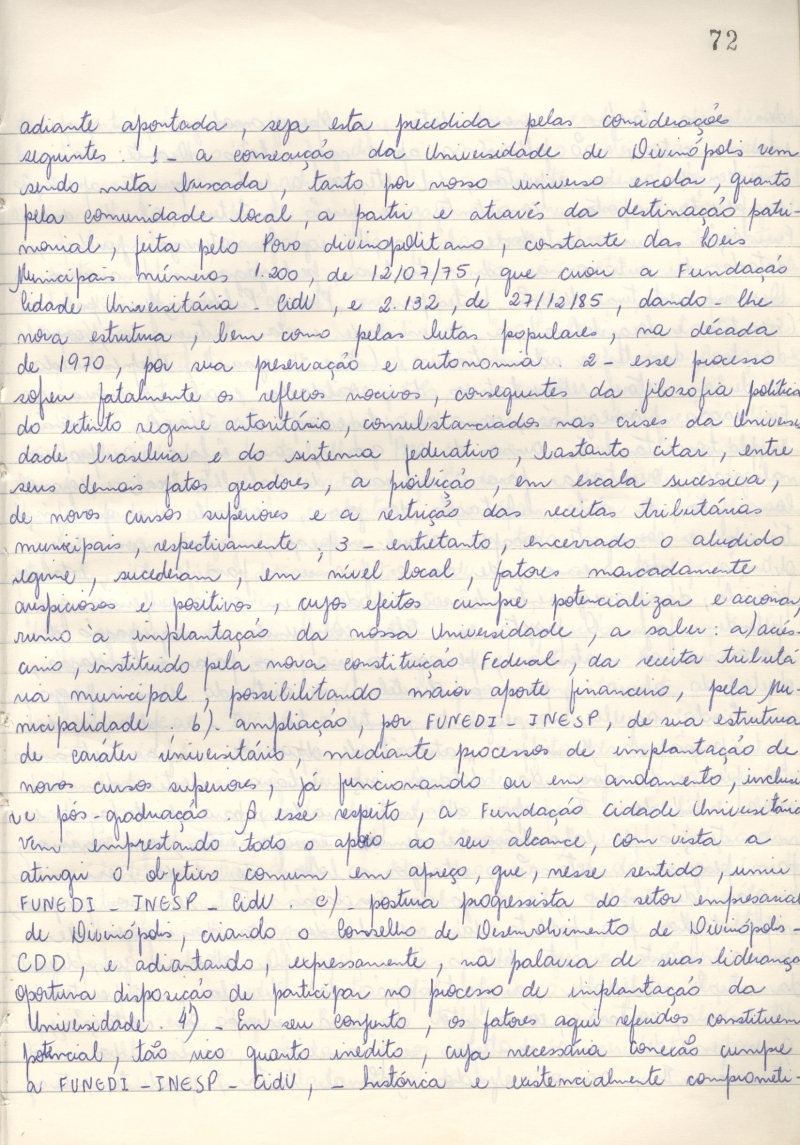 72
adiante apontada, seja esta precedida pelas considerações
seguintes: 1 - a consecução da Universidade de Divinópolis vem
sendo meta buscada, tanto por nosso universo escolar, quanto
pela comunidade local, a partir e através da destinação patri-
monial, feita pelo Povo divinopolitano, constante das Leis
Municipais números 1.200, de 12/07/75, que criou a Fundação
Cidade Universitária - CidU, e 2.132, de 27/12/85, dando-lhe
nova estrutura, bem como pelas lutas populares, na década
de 1970, por sua preservação e autonomia. 2 - esse processo
sofreu fatalmente os reflexos nocivos, consequentes da filosofia política
do extinto regime autoritário, consubstanciados nas crises da Universi
dade brasileira e do sistema federativo, bastanto citar, entre
seus demais fatos geradores, a proibição, em escala sucessiva,
de novos cursos superiores e a restrição das receitas tributárias
municipais, respectivamente; 3 - entretanto, encerrado o aludido
regime, sucederam, em nível local, fatores marcadamente
auspiciosos e positivos, cujos efeitos cumpre potencializar e acionar,
rumo à implantação da nossa Universidade, a saber: a) acrés-
cimo, instituido pela nova constituição Federal, da receita tributá
ria municipal, possibilitando maior aporte financeiro, pela Mu-
nicipalidade b). ampliação, por FUNEDI - INESP, de sua estrutura
de caráter universitário, mediante processos de implantação de
novos cursos superiores, já funcionando ou em andamento, inclusi
ve pós-graduação. A esse respeito, a Fundação Cidade Universitária
vem emprestando todo o apoio ao seu alcance, com vista a
atingir o objetivo comum em apreço, que, nesse sentido, uniu
FUNEDI - INESP - CidU. c) postura progressista do setor empresarial
de Divinópolis, criando o Conselho de Desenvolvimento de Divinópolis -
CDD, e adiantando, expressamente, na palavra de suas liderança
oportuna disposição de participar no processo de implantação da
Universidade. 4) - Em seu conjunto, os fatores aqui referidos constituem
potencial, tão rico quanto inédito, cuja necessária coneção cumpre
a FUNEDI - INESP - CidU, - histórica e existencialmente comprometi-